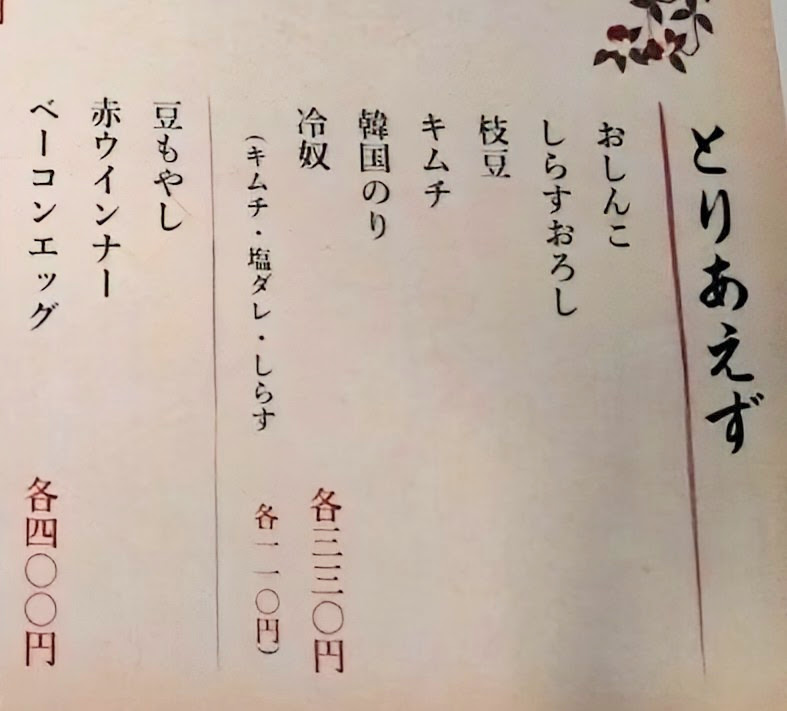 とりあえず
おしんこ
しらすおろし
枝豆
キムチ
韓国のり
冷奴 各三三〇円
(キムチ・塩ダレ・しらす 各一一〇円)
豆もやし
赤ウインナー
ベーコンエッグ 各四〇〇円